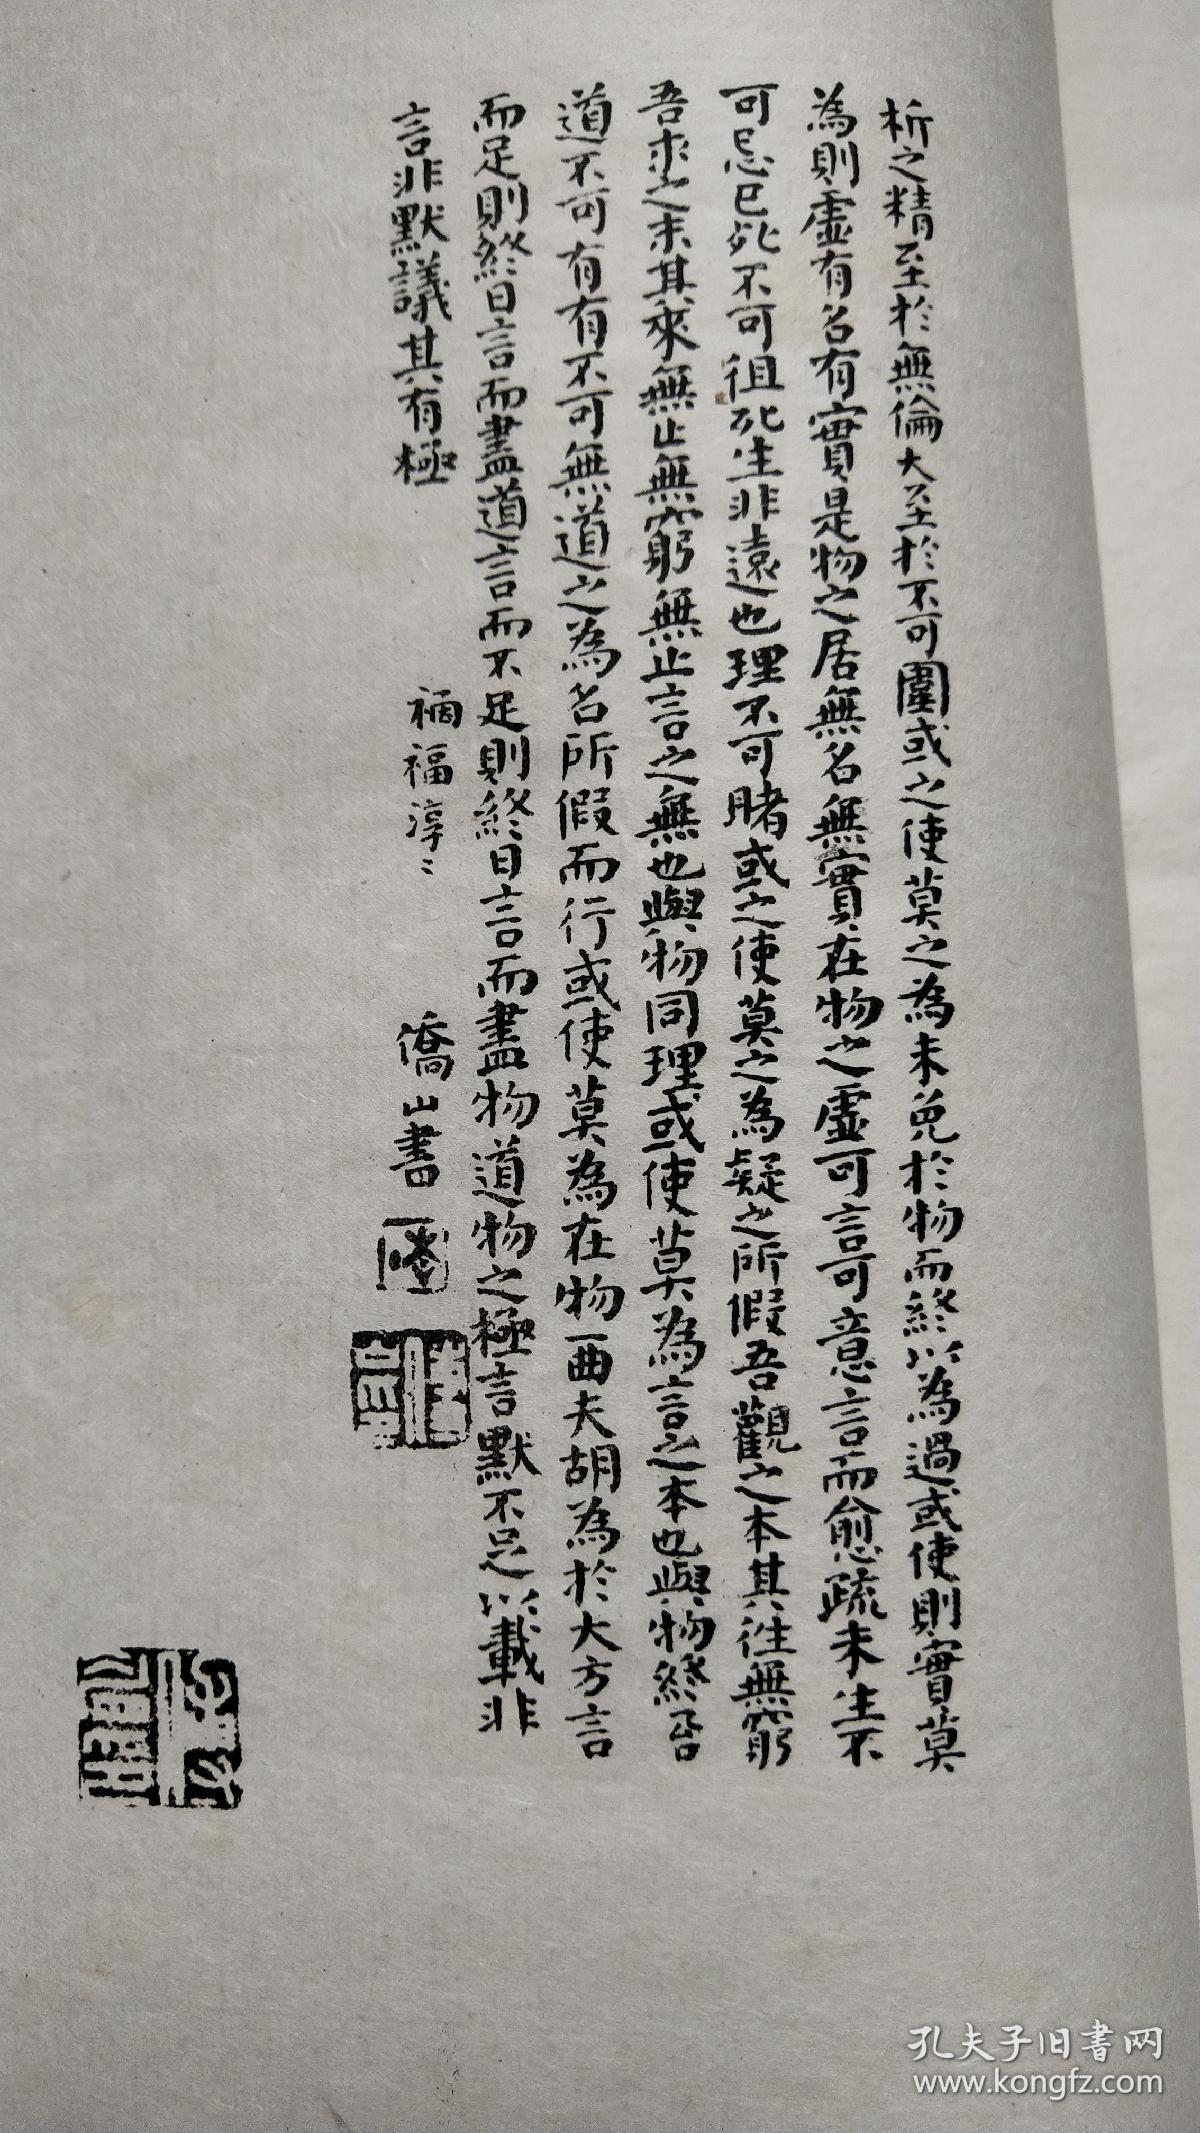 析之精至於無倫大至於不可圍或之使莫之為未免於物而終以為過或使則實莫
為則虛有名有實是物之居無名無實在物之虛可言可意言而愈疏未生不
可忌已死不可徂死生非遠也理不可睹或之使莫之為疑之所假吾觀之本其往無窮
吾求之末其來無止無窮無止言之無也與物同理或使莫為言之本也與物終始
道不可有有不可無道之為名所假而行或使莫為在物一曲夫胡為於大方言
而足則終日言而盡道言而不足則終日言而盡物道物之極言默不足以載非
言非默議其有極
禍福淳〻
僑山書
孔夫子旧书网
www.kongfz.com